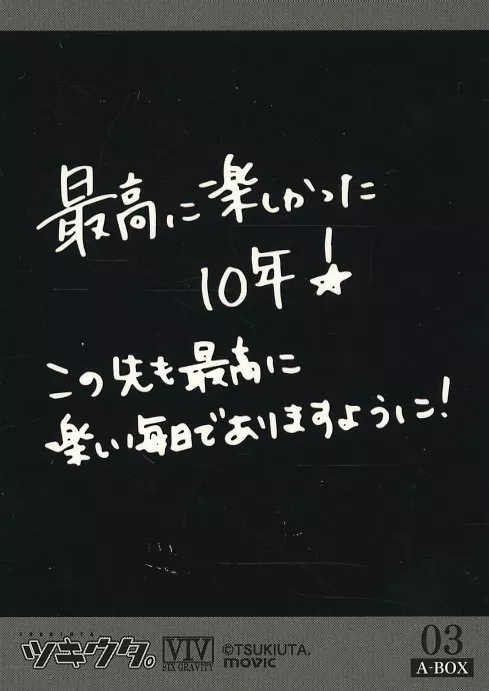 最高に楽しかった
10年!☆
この先も最高に
楽しい毎日でありますように!
TSUKIUTA
ツキウタ。
VTV
SIX GRAVITY
©TSUKIUTA.
movic
03
A-BOX